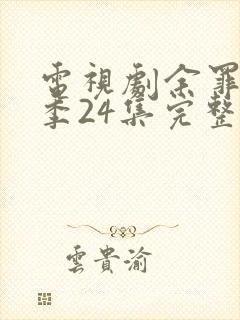 電視劇余罪
季24集完整
雲貴渝